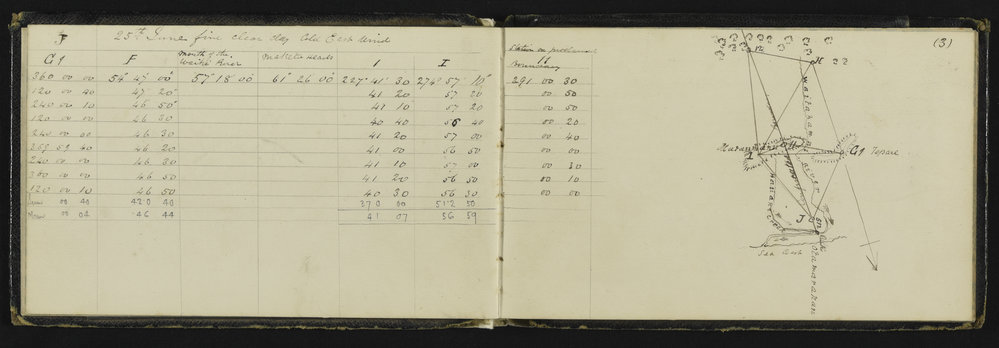 J 25th June fine clear day Cold East wind
G1 F Mouth of the Waihi River Maketu Heads 1 I Station on proclaimed Boundary
360 00 00 54° 47' 00" 57° 18' 00" 61° 26' 00 227° 41' 30 274° 57' 10" 291 00 30
120 00 40 47 20 41 20 57 20 00 50
240 00 10 46 50 41 10 57 20 00 50
120 00 00 46 30 40 40 56 40 00 20
240 00 00 46 30 41 20 57 00 00 40
359 59 40 46 20 41 00 56 50 00 00
240 00 00 46 30 41 10 57 00 00 30
360 00 00 46 50 41 20 56 50 00 10
120 00 10 46 50 40 30 56 30 00 00
00 40 420 40 370 00 512 50
Mean 00 04 46 44 41 07 56 59
(3)
H 22
G1 Topare
1
J
Sea Coast
river